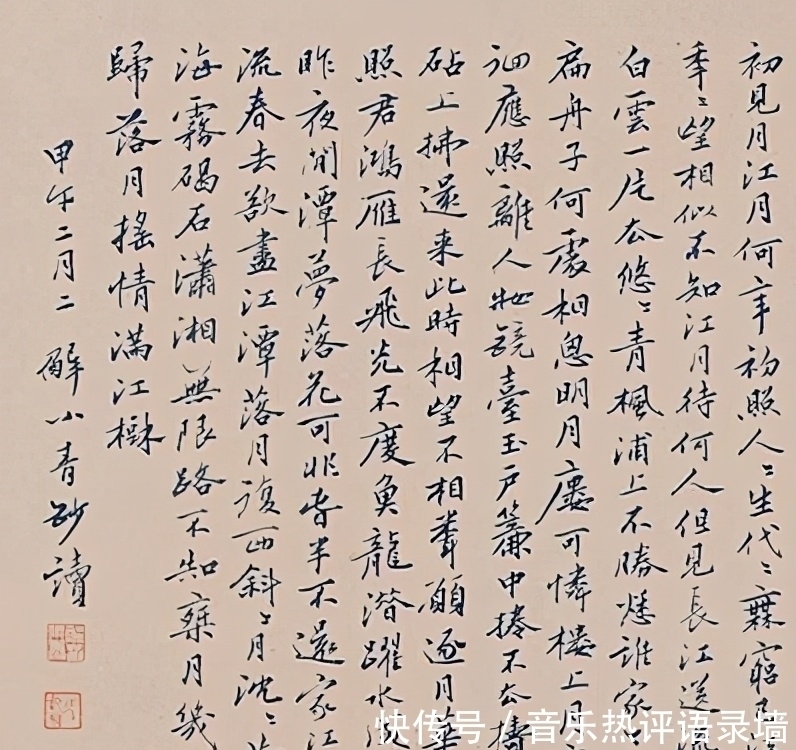 初見月江月何年初照人〻生代〻無窮已
年〻望相似不知江月待何人但見長江送
白雲一片去悠〻青楓浦上不勝愁誰家
扁舟子何處相思明月樓可憐樓上月
徊應照離人妝鏡臺玉戶簾中捲不去擣
砧上拂還来此時相望不相聞願逐月華
照君鴻雁長飛光不度魚龍潛躍水
昨夜閒潭夢落花可春半不還家江
流春去欲盡江潭落月復西斜〻月沈〻
海霧碣石瀟湘無限路不知乘月幾
歸落月搖情滿江樹
甲午二月二 解小青鈔讀
快传号 / 音乐热评语录墙